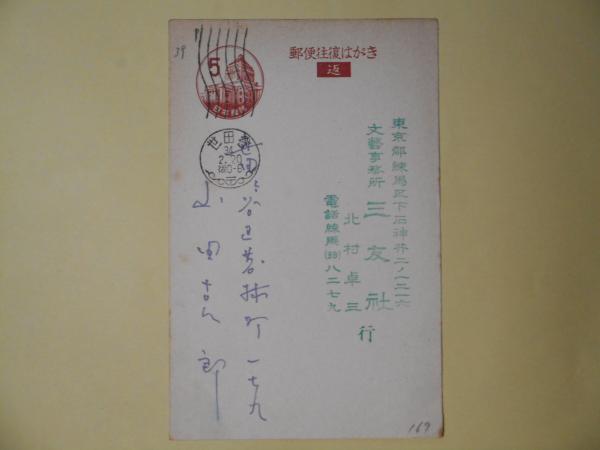 39
5
日本郵便
郵便往復はがき
返
世田谷
34
2.20
東京都練馬区下石神井二ノ一二一六
文藝事務所 三友社
北村卓三
行
電話練馬(99)八二七九
世田ヶ谷区若林町一七九
山田吉郎
169